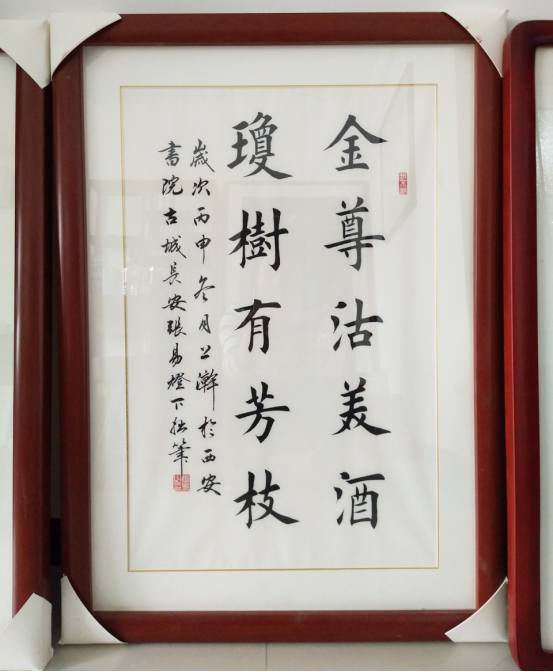 金尊沽美酒
瓊樹有芳枝
歲次丙申冬月上澣於西安
書院古城長安張易燈下拙筆